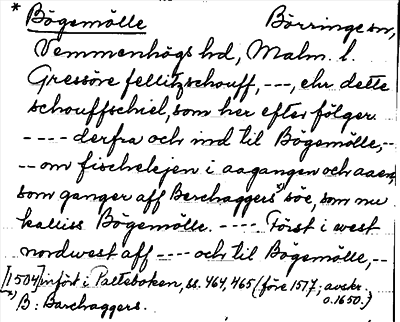 * Bögemölle Börringe sn,
Vemmenhögs hd, Malm. l.
Gressöre fellitzschouff, ---, ehr dette
schouffschiel, som her efter fölger.
---- derfra och ind til Bögemölle, --
-- om fischelejen i aagangen och aaen,
som ganger aff Barchaggers*) söe, som nu
kalliss Bögemölle. ---- Först i west
nordwest aff ---- och til Bögemölle, --
[1504] infört i Palteboken, ss. 464, 465 (före 1517; avskr.
*) B: Barchaggers. o. 1650.)